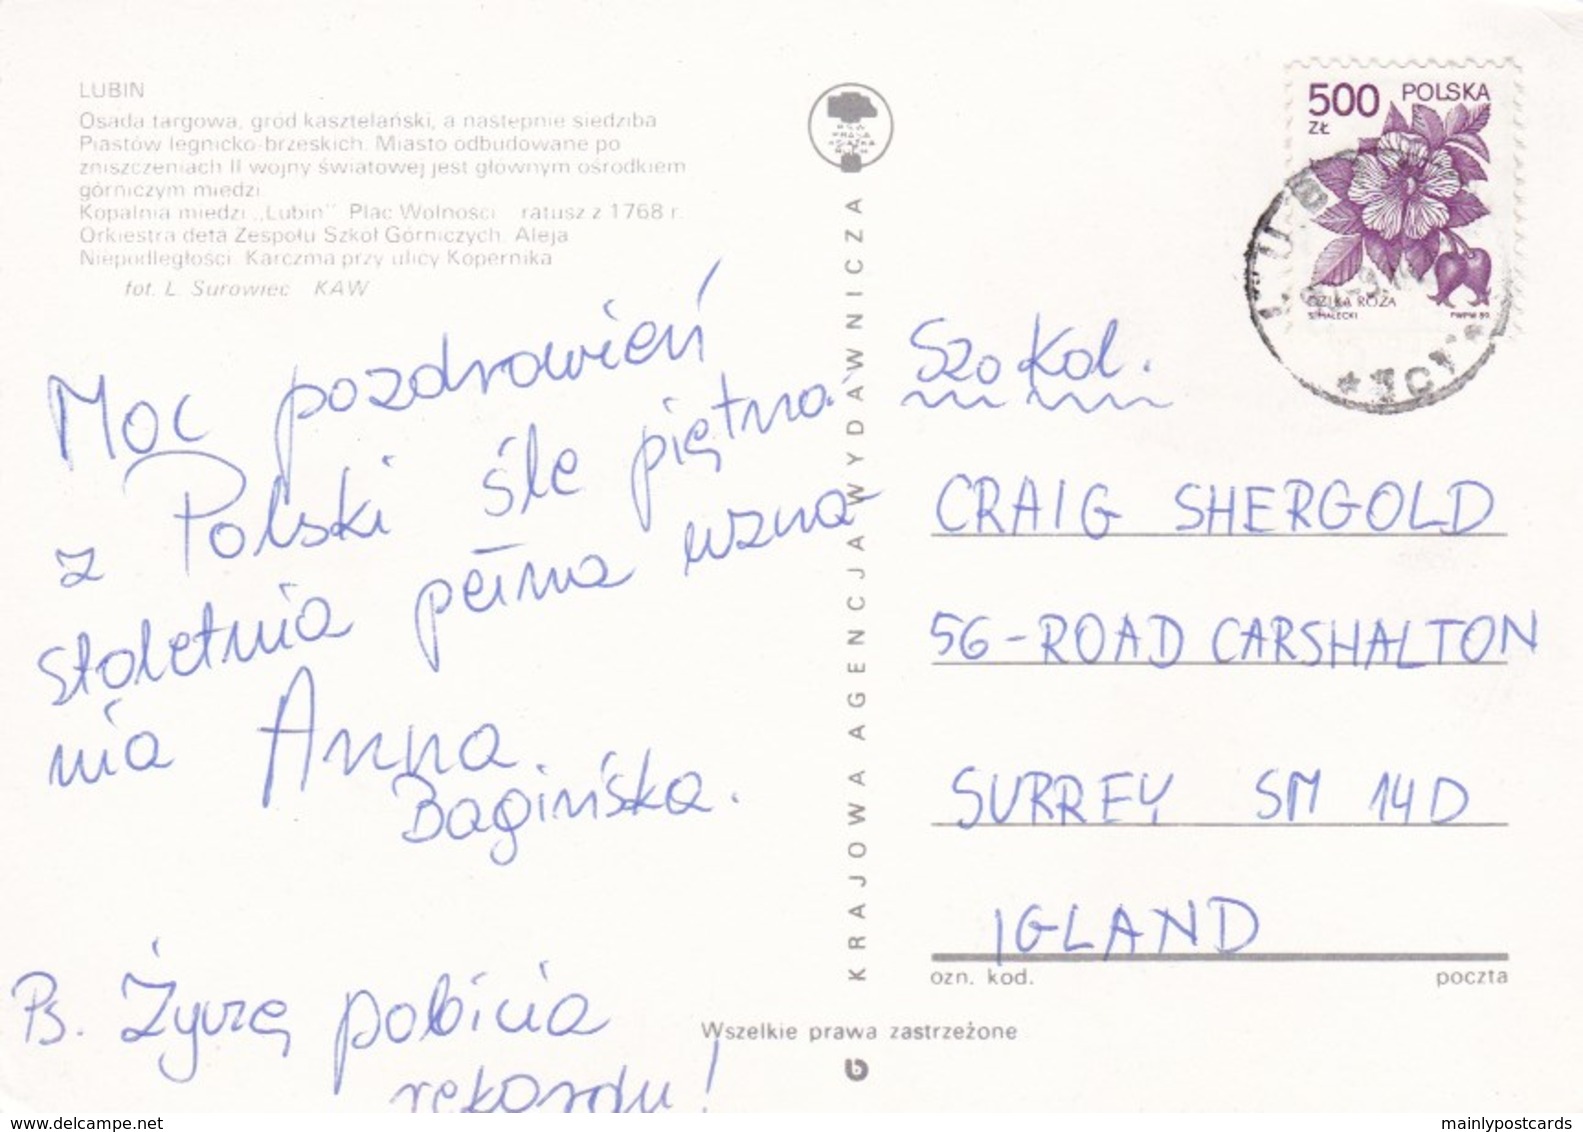 LUBIN
Osada targowa, gród kasztelański, a następnie siedziba
Piastów legnicko-brzeskich. Miasto odbudowane po
zniszczeniach II wojny światowej jest głównym ośrodkiem
górniczym miedzi.
Kopalnia miedzi „Lubin” Plac Wolności ratusz z 1768 r.
Orkiestra dęta Zespołu Szkół Górniczych. Aleja
Niepodległości. Karczma przy ulicy Kopernika
fot. L. Surowiec KAW
Moc pozdrowień
z Polski śle piętna
stoletnia pełna uzna
nia Anna
Bagińska.
Ps. Życzę pobicia
rekordu!
KRAJOWA AGENCJA WYDAWNICZA
RSW
PRASA
KSIĄŻKA
RUCH
500 POLSKA
ZŁ
DZIKA RÓŻA
S. MAŁECKI PWPW 89
Szokol.
CRAIG SHERGOLD
56-ROAD CARSHALTON
SURREY SM 14D
IGLAND
ozn. kod. poczta
Wszelkie prawa zastrzeżone
b
mainlypostcards.delcampe.net
mainlypostcards